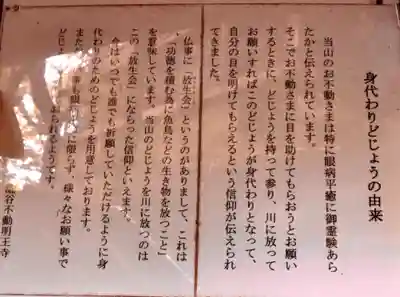 身代わりどじょうの由来
当山のお不動さまは特に眼病平癒に御霊験あら
たかと伝えられています。
そこでお不動さまに目を助けてもらおうとお願い
するときに、どじょうを持って参り、川に放って
お願いすればこのどじょうが身代わりとなって、
自分の目を明けてもらえるという信仰が伝えられ
てきました。
仏事に「放生会」というのがありまして、これは
「功徳を積む為に魚鳥などの生き物を放つこと」
を意味しています。当山のどじょうを川に放つのは
この「放生会」にならった信仰といえます。
今はいつでも誰でも祈願していただけるように身
代わりのためのどじょうを用意しております。
また
に限らず、様々なお願い事で
どじょう
られるようです。
谷不動明王寺